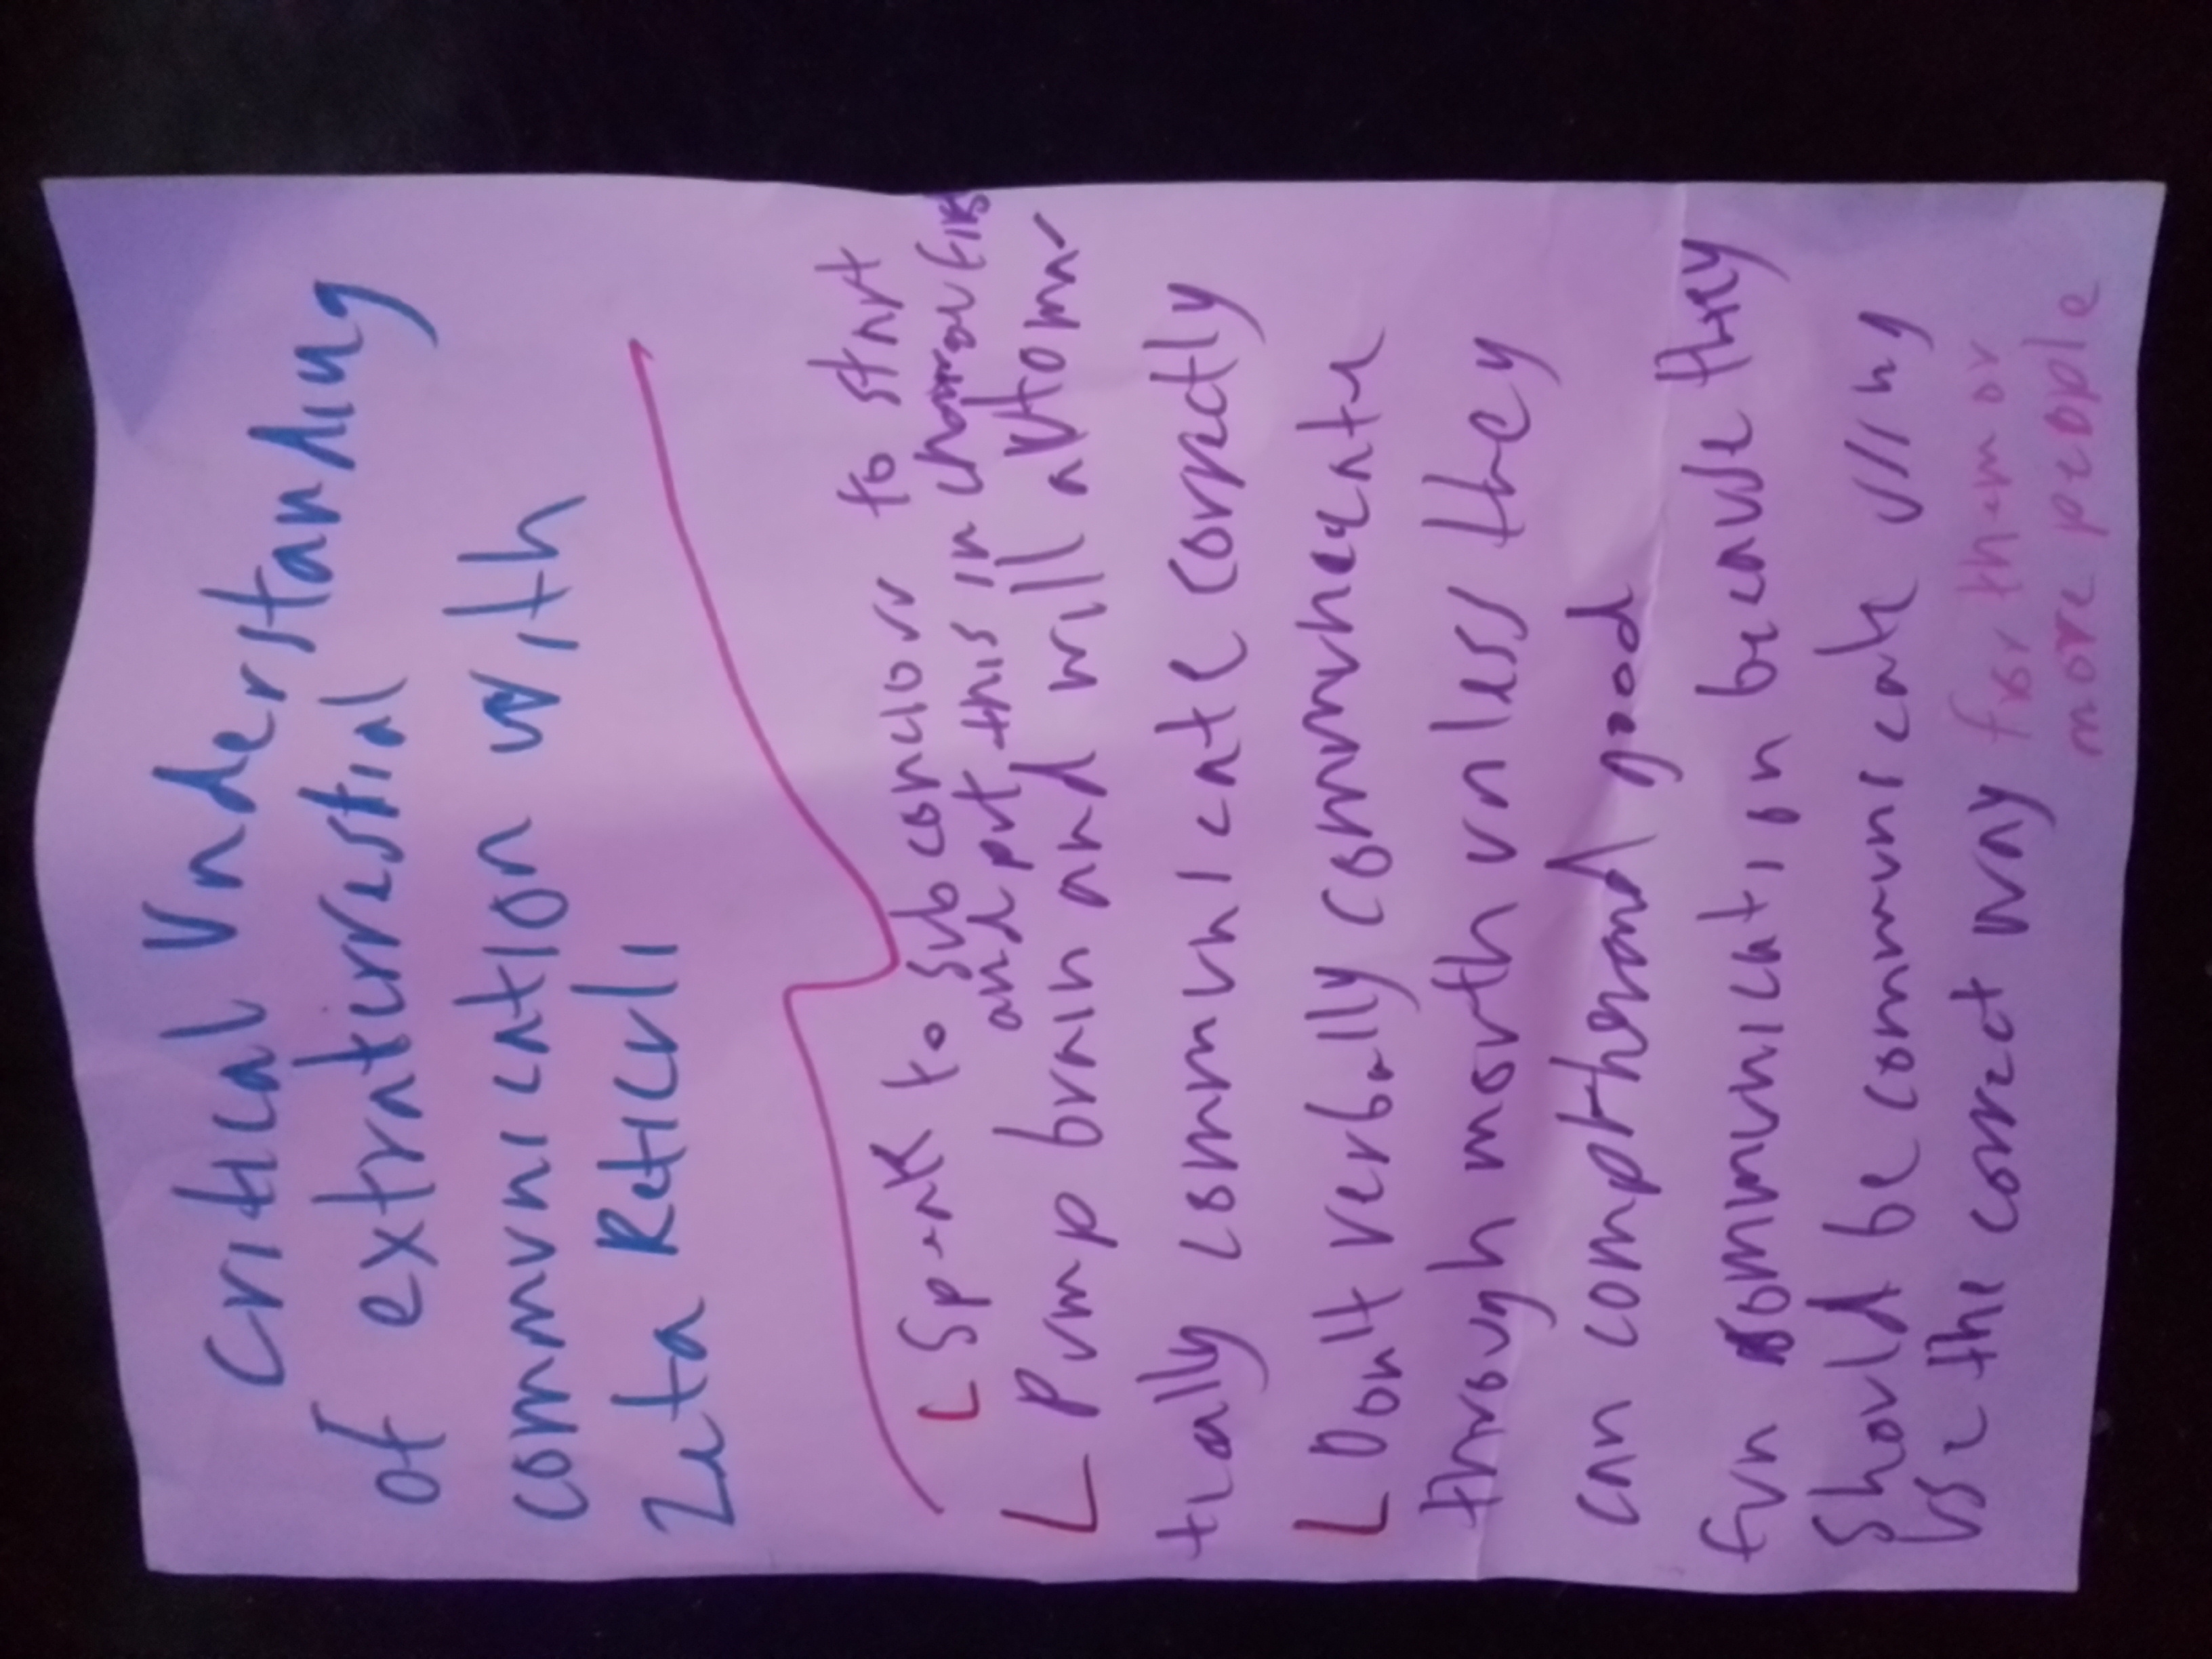 Critical Understanding
of extraterrestial
communication with
Zeta Reticuli
Speak to subconcious to start
and put this in
pump brain and will
tially communicate correctly
Don't verbally communicate
through mouth unless they
can comprehend good
in because they
should be communicate
use the correct way for them or
more people